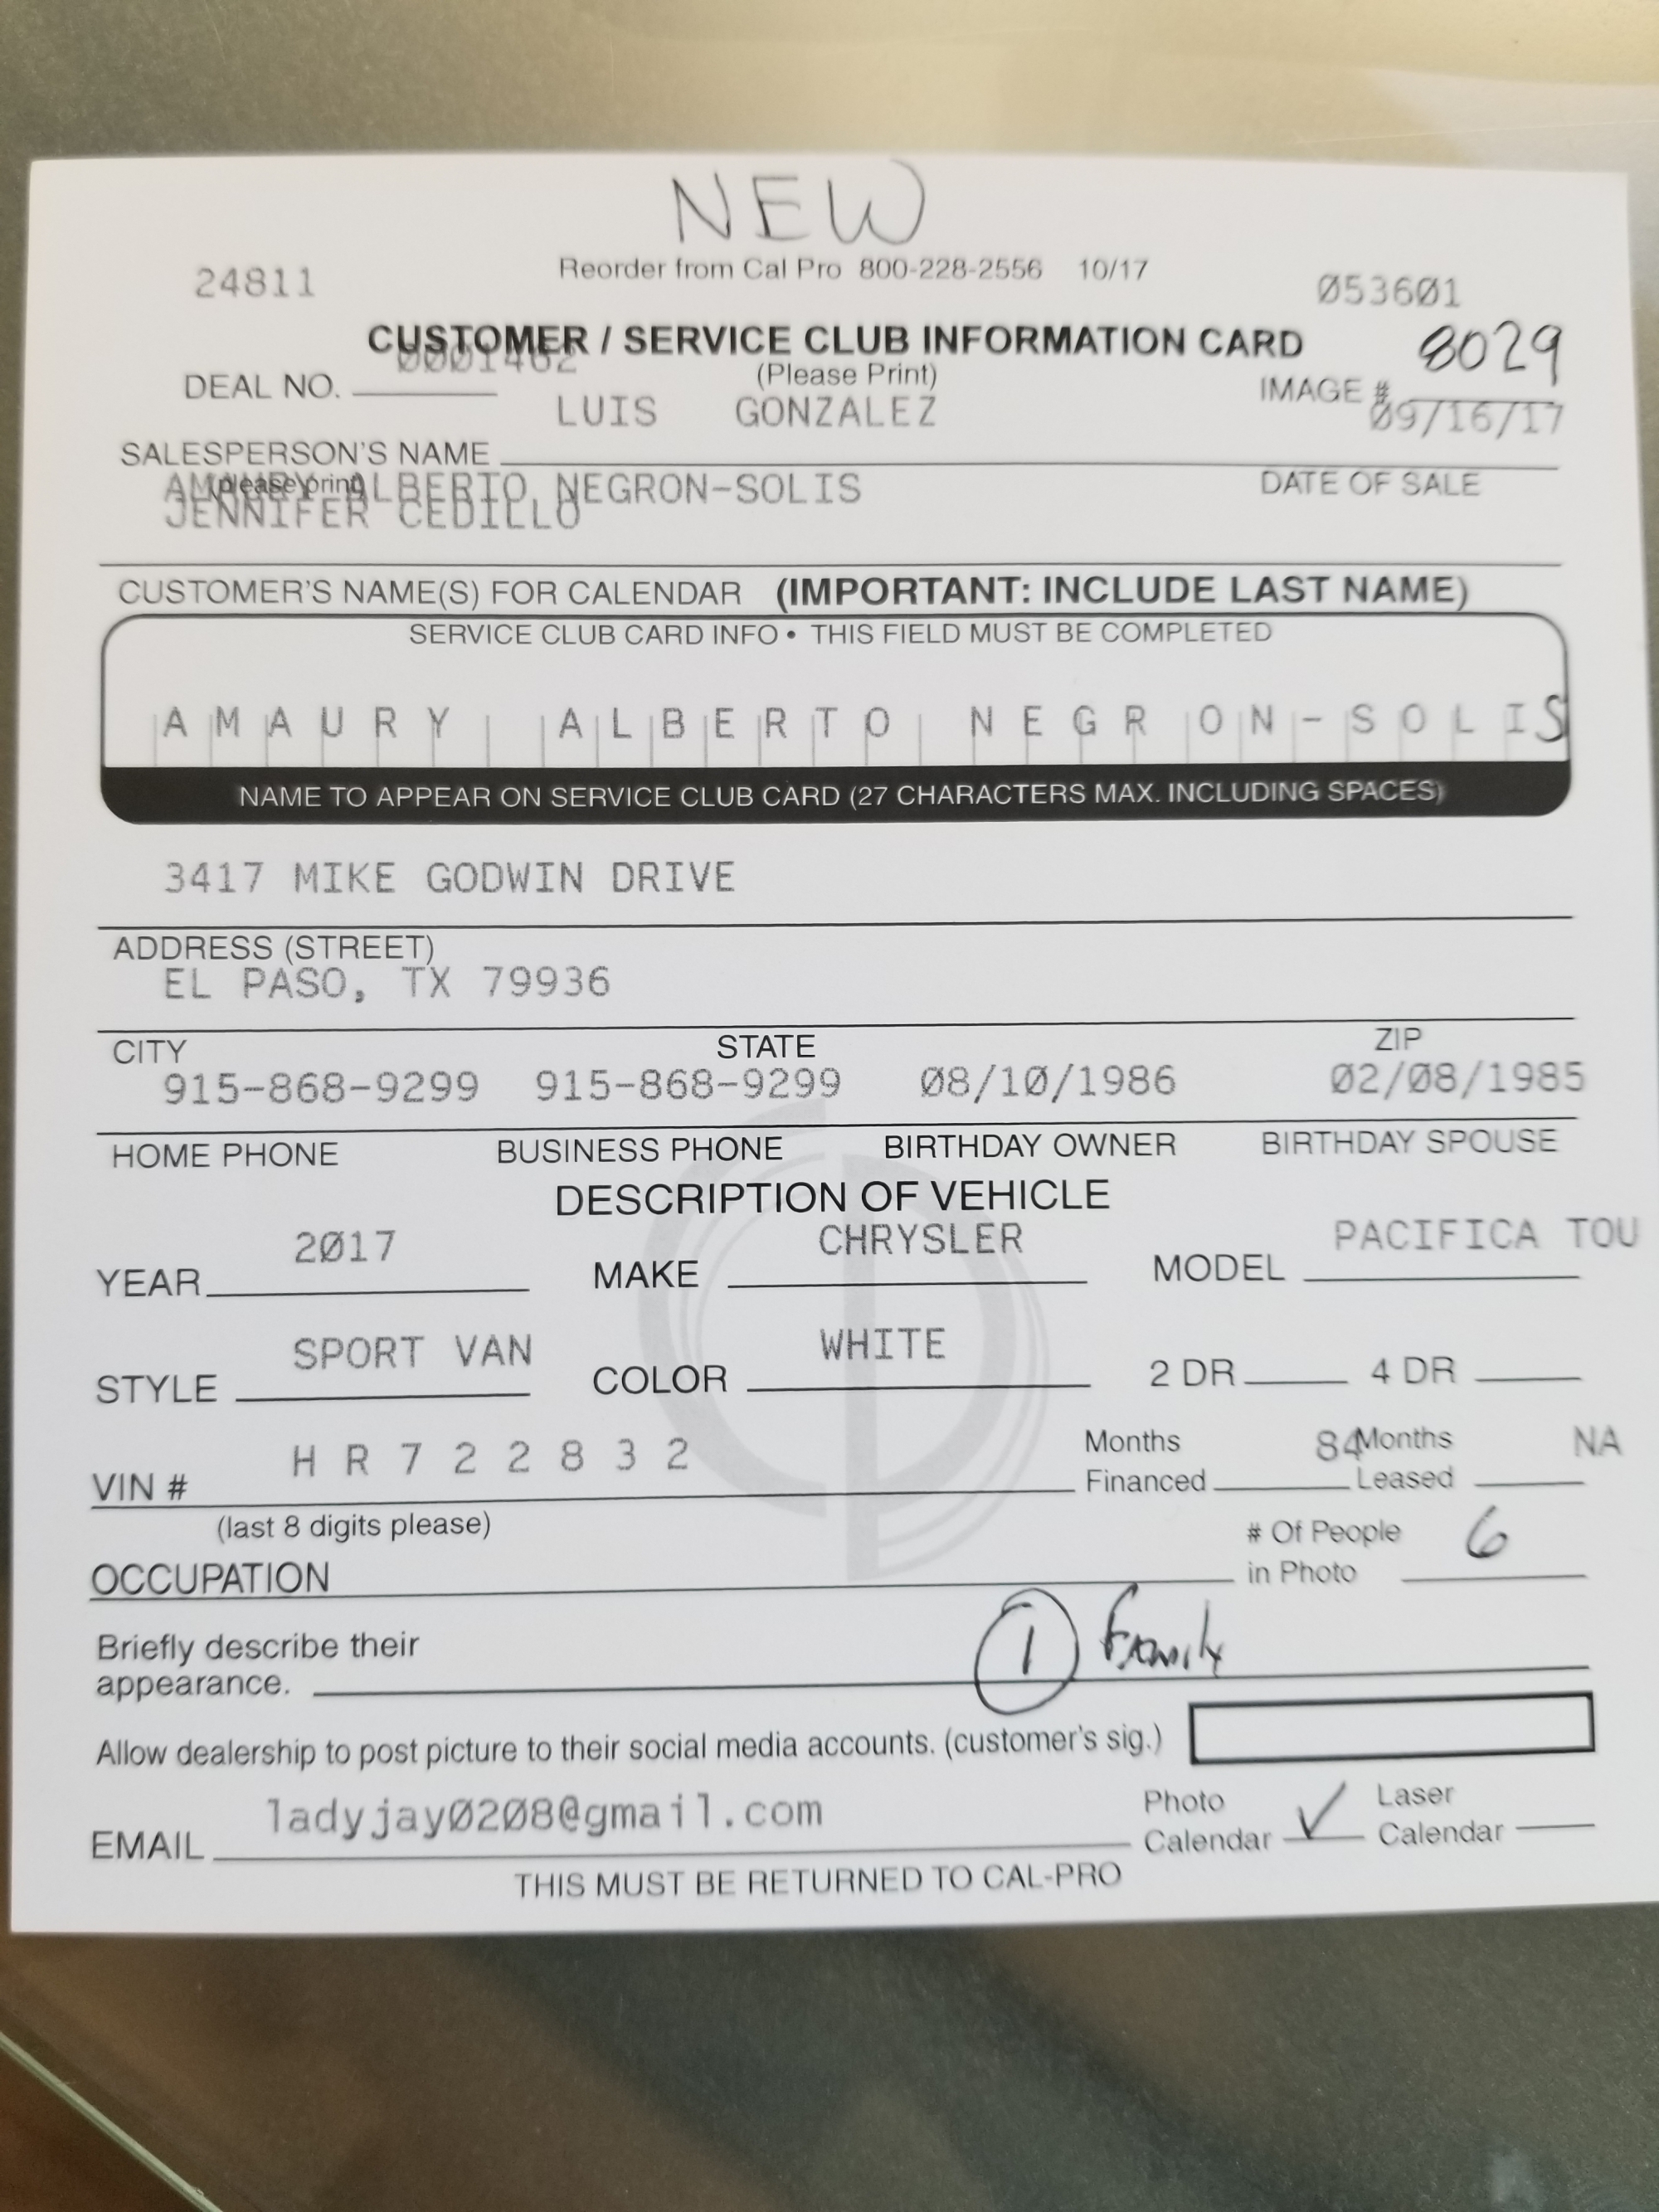 NEW
Reorder from Cal Pro 800-228-2556 10/17
24811 053601
CUSTOMER / SERVICE CLUB INFORMATION CARD 8029
0001462
(Please Print)
DEAL NO. IMAGE #
LUIS GONZALEZ 09/16/17
SALESPERSON'S NAME
(please print) DATE OF SALE
AMAURY ALBERTO NEGRON-SOLIS
JENNIFER CEDILLO
CUSTOMER'S NAME(S) FOR CALENDAR (IMPORTANT: INCLUDE LAST NAME)
SERVICE CLUB CARD INFO • THIS FIELD MUST BE COMPLETED
AMAURY ALBERTO NEGRON-SOLIS
NAME TO APPEAR ON SERVICE CLUB CARD (27 CHARACTERS MAX. INCLUDING SPACES)
3417 MIKE GODWIN DRIVE
ADDRESS (STREET)
EL PASO, TX 79936
CITY STATE ZIP
915-868-9299 915-868-9299 08/10/1986 02/08/1985
HOME PHONE BUSINESS PHONE BIRTHDAY OWNER BIRTHDAY SPOUSE
DESCRIPTION OF VEHICLE
2017 CHRYSLER PACIFICA TOU
YEAR MAKE MODEL
SPORT VAN WHITE
STYLE COLOR 2 DR 4 DR
HR722832 Months 84 Months NA
VIN # Financed Leased
(last 8 digits please) # Of People 6
OCCUPATION in Photo
Briefly describe their 1 Family
appearance.
Allow dealership to post picture to their social media accounts. (customer's sig.)
ladyjay0208@gmail.com Photo ✓ Laser
EMAIL Calendar Calendar
THIS MUST BE RETURNED TO CAL-PRO